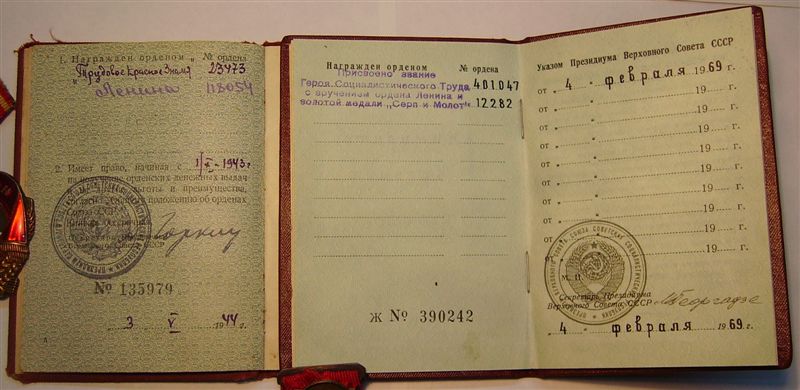 1. Награжден орденом № ордена
„Трудовое Красное Знамя 23473
Ленина 118054
2. Имеет право, начиная с 1/X-1943 г.
на получение орденских денежных выдач
льготы и преимущества,
положению об орденах
Союза ССР
Верховного Совета СССР
Горкин
№ 135979
3 V 1944 г.
Награжден орденом № ордена
Присвоено звание
Героя Социалистического Труда 401.047
с вручением ордена Ленина и
золотой медали „Серп и Молот" 12282
Ж № 390242
Указом Президиума Верховного Совета СССР
от „ 4 " февраля 1969 г.
от „ " 19 г.
от „ " 19 г.
от „ " 19 г.
от „ " 19 г.
от „ " 19 г.
от „ " 19 г.
от „ " 19 г.
М. П.
Секретарь Президиума
Верховного Совета СССР Георгадзе
„ 4 " февраля 1969 г.